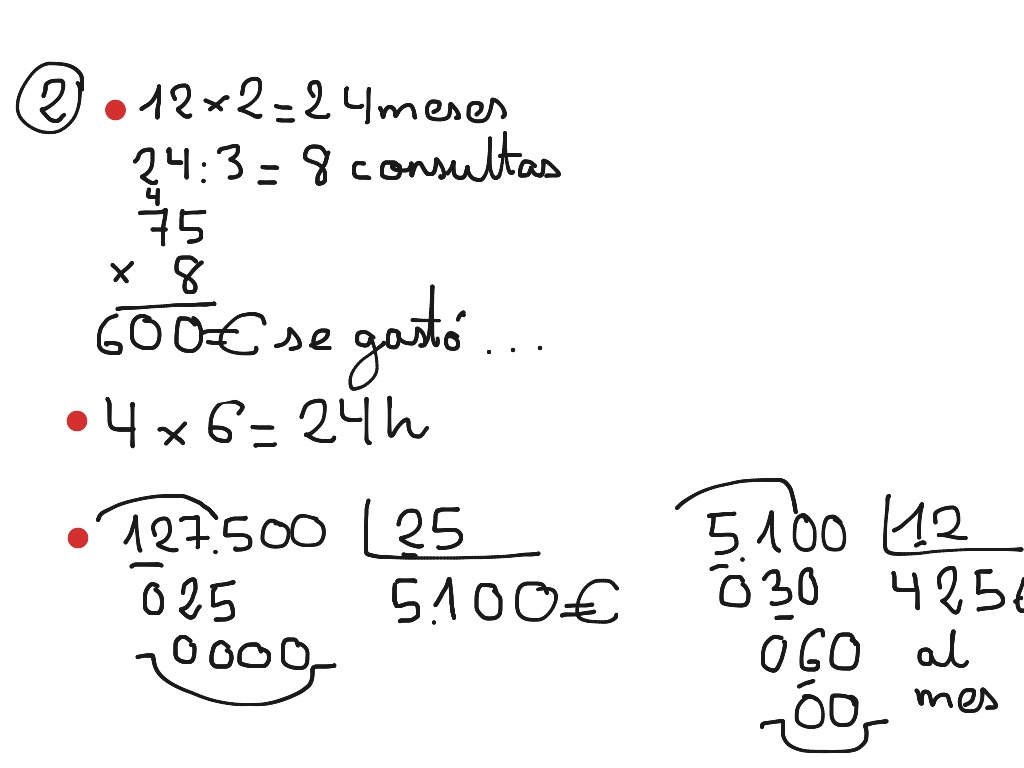 2 • 12 × 2 = 24 meses
24 : 3 = 8 consultas
4
75
× 8
600€ se gastó ...
• 4 × 6 = 24h
• 127.500 25 5.100 12
025 5.100€ 030 425€
0000 060 al
00 mes